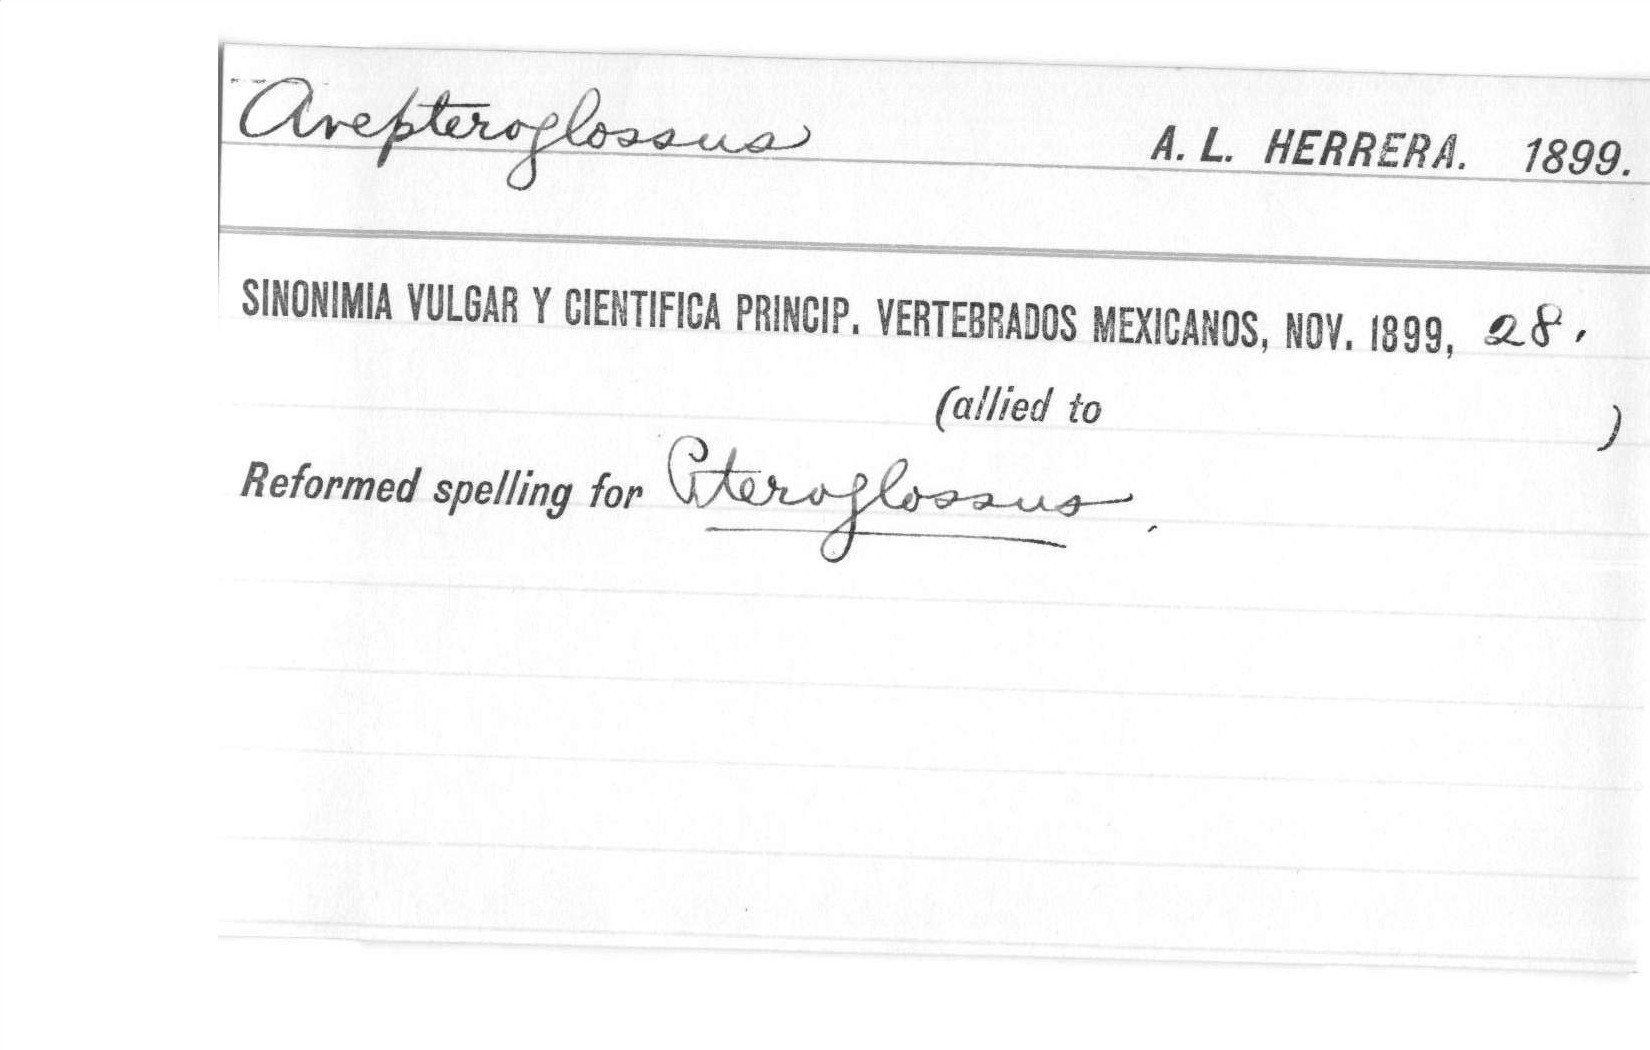 Avepteroglossus A. L. HERRERA. 1899.
SINONIMIA VULGAR Y CIENTIFICA PRINCIP. VERTEBRADOS MEXICANOS, NOV. 1899, 28.
(allied to )
Reformed spelling for Pteroglossus.